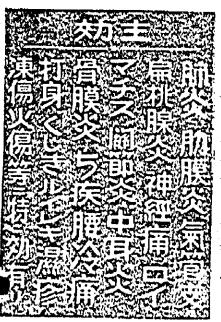 主効
肺炎肋膜炎氣管支
扁桃腺炎神経痛ロイ
マチス関節炎中耳炎
骨膜炎ぢ疾腰冷痛
打身くじき火傷
凍傷火傷等ニ特効有リ